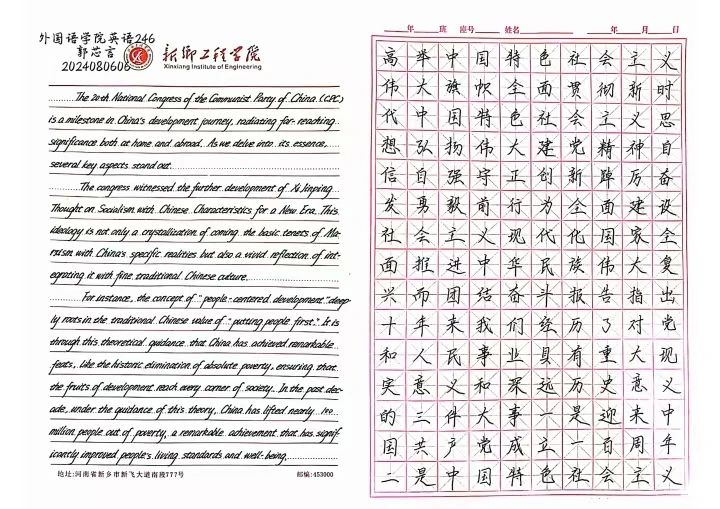 外国语学院英语246
郭芯言
2024080606
新乡工程学院
Xinxiang Institute of Engineering
The 20-th National Congress of the Communist Party of China (CPC)
is a milestone in China's development journey, radiating far-reaching
significance both at home and abroad. As we delve into its essence,
several key aspects stand out.
The congress witnessed the further development of Xi Jinping
Thought on Socialism with Chinese Characteristics for a New Era. This
ideology is not only a crystallization of coming the basic tenets of Ma-
rxism with China's specific realities but also a vivid reflection of int-
egrating it with fine traditional Chinese culture.
For instance, the concept of "people-centered development" deep-
ly roots in the traditional Chinese value of "putting people first." It is
through this theoretical guidance that China has achieved remarkable
feats, like the historic elimination of absolute poverty, ensuring that
the fruits of development reach every corner of society. In the past dec-
ade, under the guidance of this theory, China has lifted nearly 100
million people out of poverty, a remarkable achievement that has signif-
icantly improved people's living standards and well-being.
地址:河南省新乡市新飞大道南段777号 邮编:453000
年 班 座号 姓名 年 月 日
高举中国特色社会主义
伟大旗帜全面贯彻新时
代中国特色社会主义思
想弘扬伟大建党精神自
信自强守正创新踔厉奋
发勇毅前行为全面建设
社会主义现代化国家全
面推进中华民族伟大复
兴而团结奋斗报告指出
十年来我们经历了对党
和人民事业具有重大现
实意义和深远历史意义
的三件大事一是迎来中
国共产党成立一百周年
二是中国特色社会主义